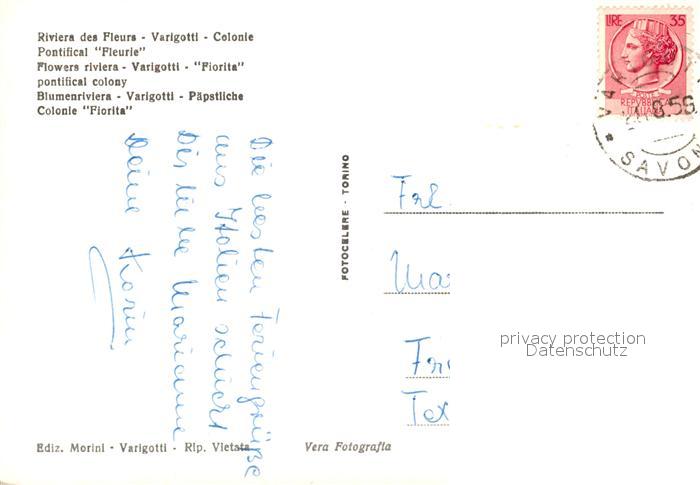 Riviera des Fleurs - Varigotti - Colonie
Pontifical "Fleurie"
Flowers riviera - Varigotti - "Fiorita"
pontifical colony
Blumenriviera - Varigotti - Päpstliche
Colonie "Fiorita"
Die besten Feriengrüße
aus Italien schickt
Dir liebe Marianne
Deine Karin
FOTOCELERE - TORINO
LIRE 35
POSTE
REPVBBLICA
ITALIANA
SAVON
Frl.
Ma
Fri
Tex
privacy protection
Datenschutz
Ediz. Morini - Varigotti - Rip. Vietata
Vera Fotografia